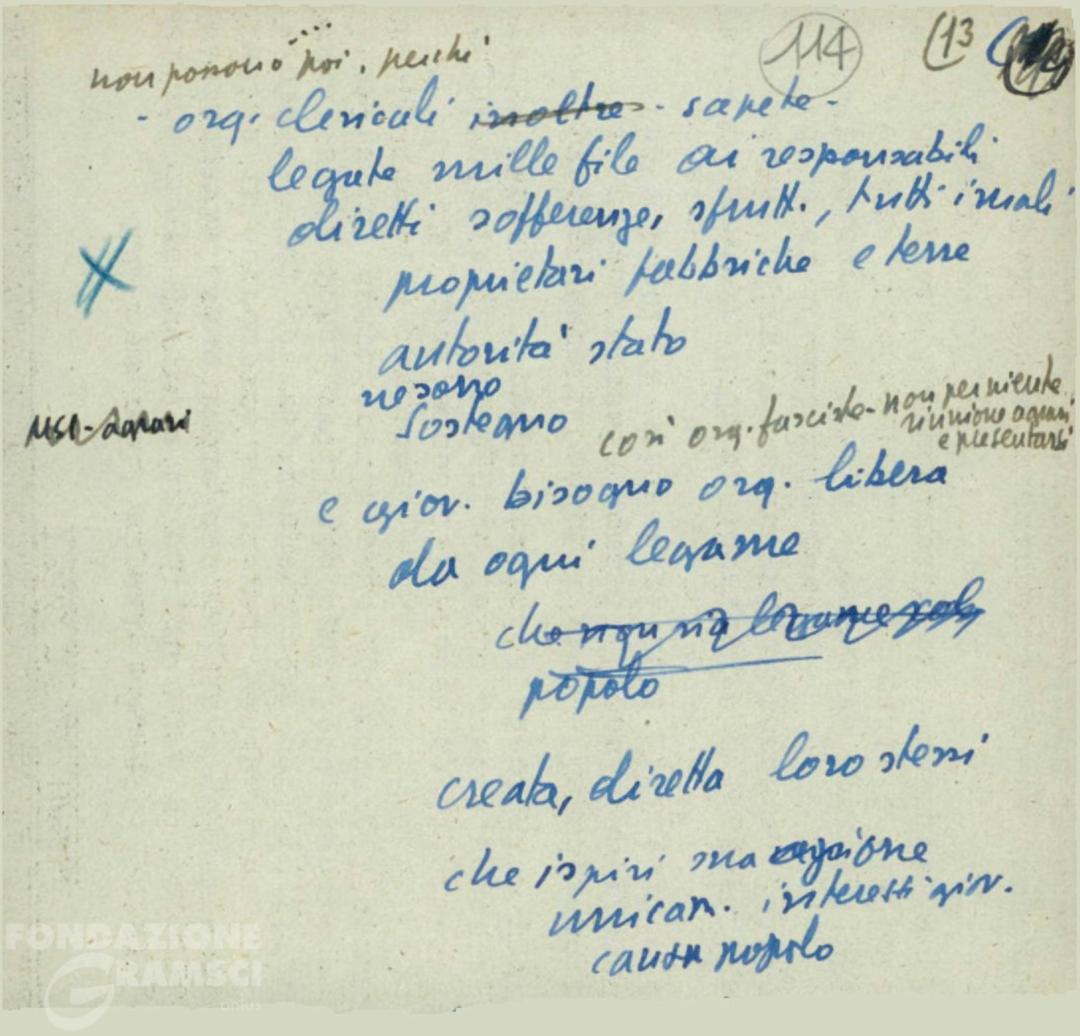 114 (13
non possono poi, perché
- org. clericali inoltre - sapete -
legate mille file ai responsabili
diretti sofferenze, sfrutt., tutti i mali
proprietari fabbriche e terre
autorità stato
ne sono
sostegno
MSI - Agrari
così org. fasciste - non per niente
riunione agrari
e presentarsi
e giov. bisogno org. libera
da ogni legame
che non sia legame col
popolo
creata, diretta loro stessi
che ispiri sua azione
unicam. interessi giov.
causa popolo
FONDAZIONE
GRAMSCI
onlus